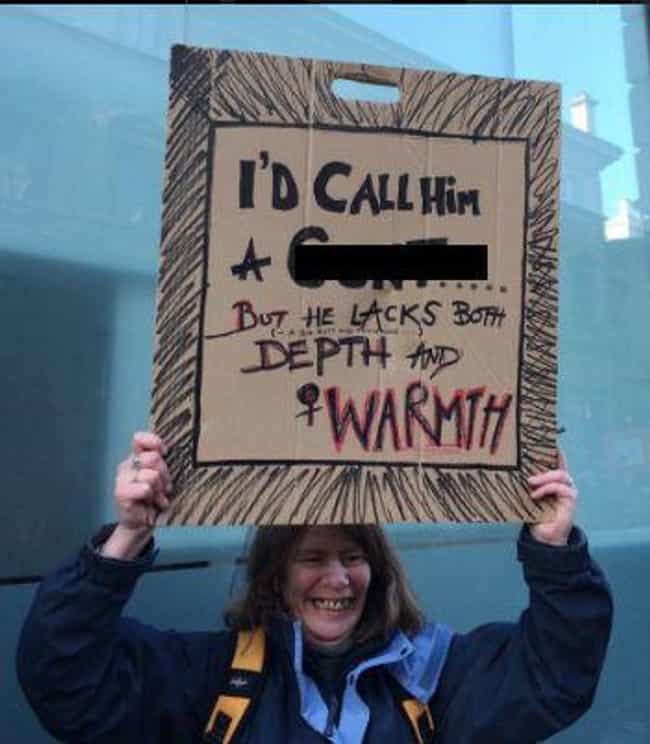 I'D CALL HiM
A
BUT HE LACKS BOTH
DEPTH AND
♀WARMTH